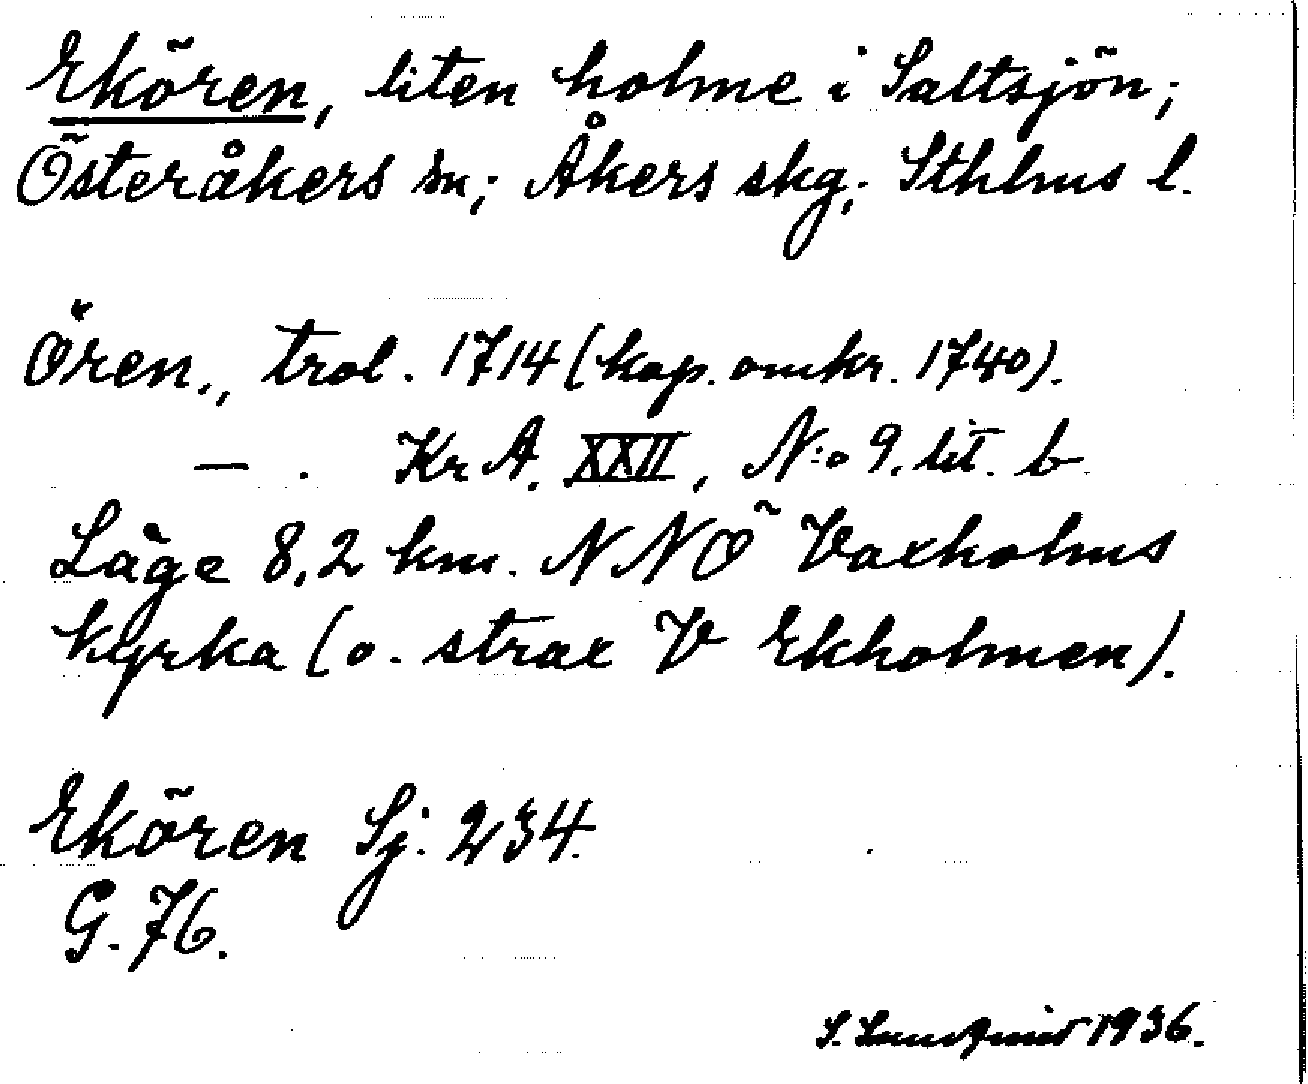 Ekören, liten holme i Saltsjön;
Österåkers sn; Åkers skg; Sthlms l.
Ören., trol. 1714 (kop. omkr. 1740).
— . Kr A. XXII, N:o 9. lit. b
Läge 8,2 km. NNÖ Vaxholms
kyrka (o. strax V Ekholmen).
Ekören Sj: 234.
G. 76.
S. 1936.